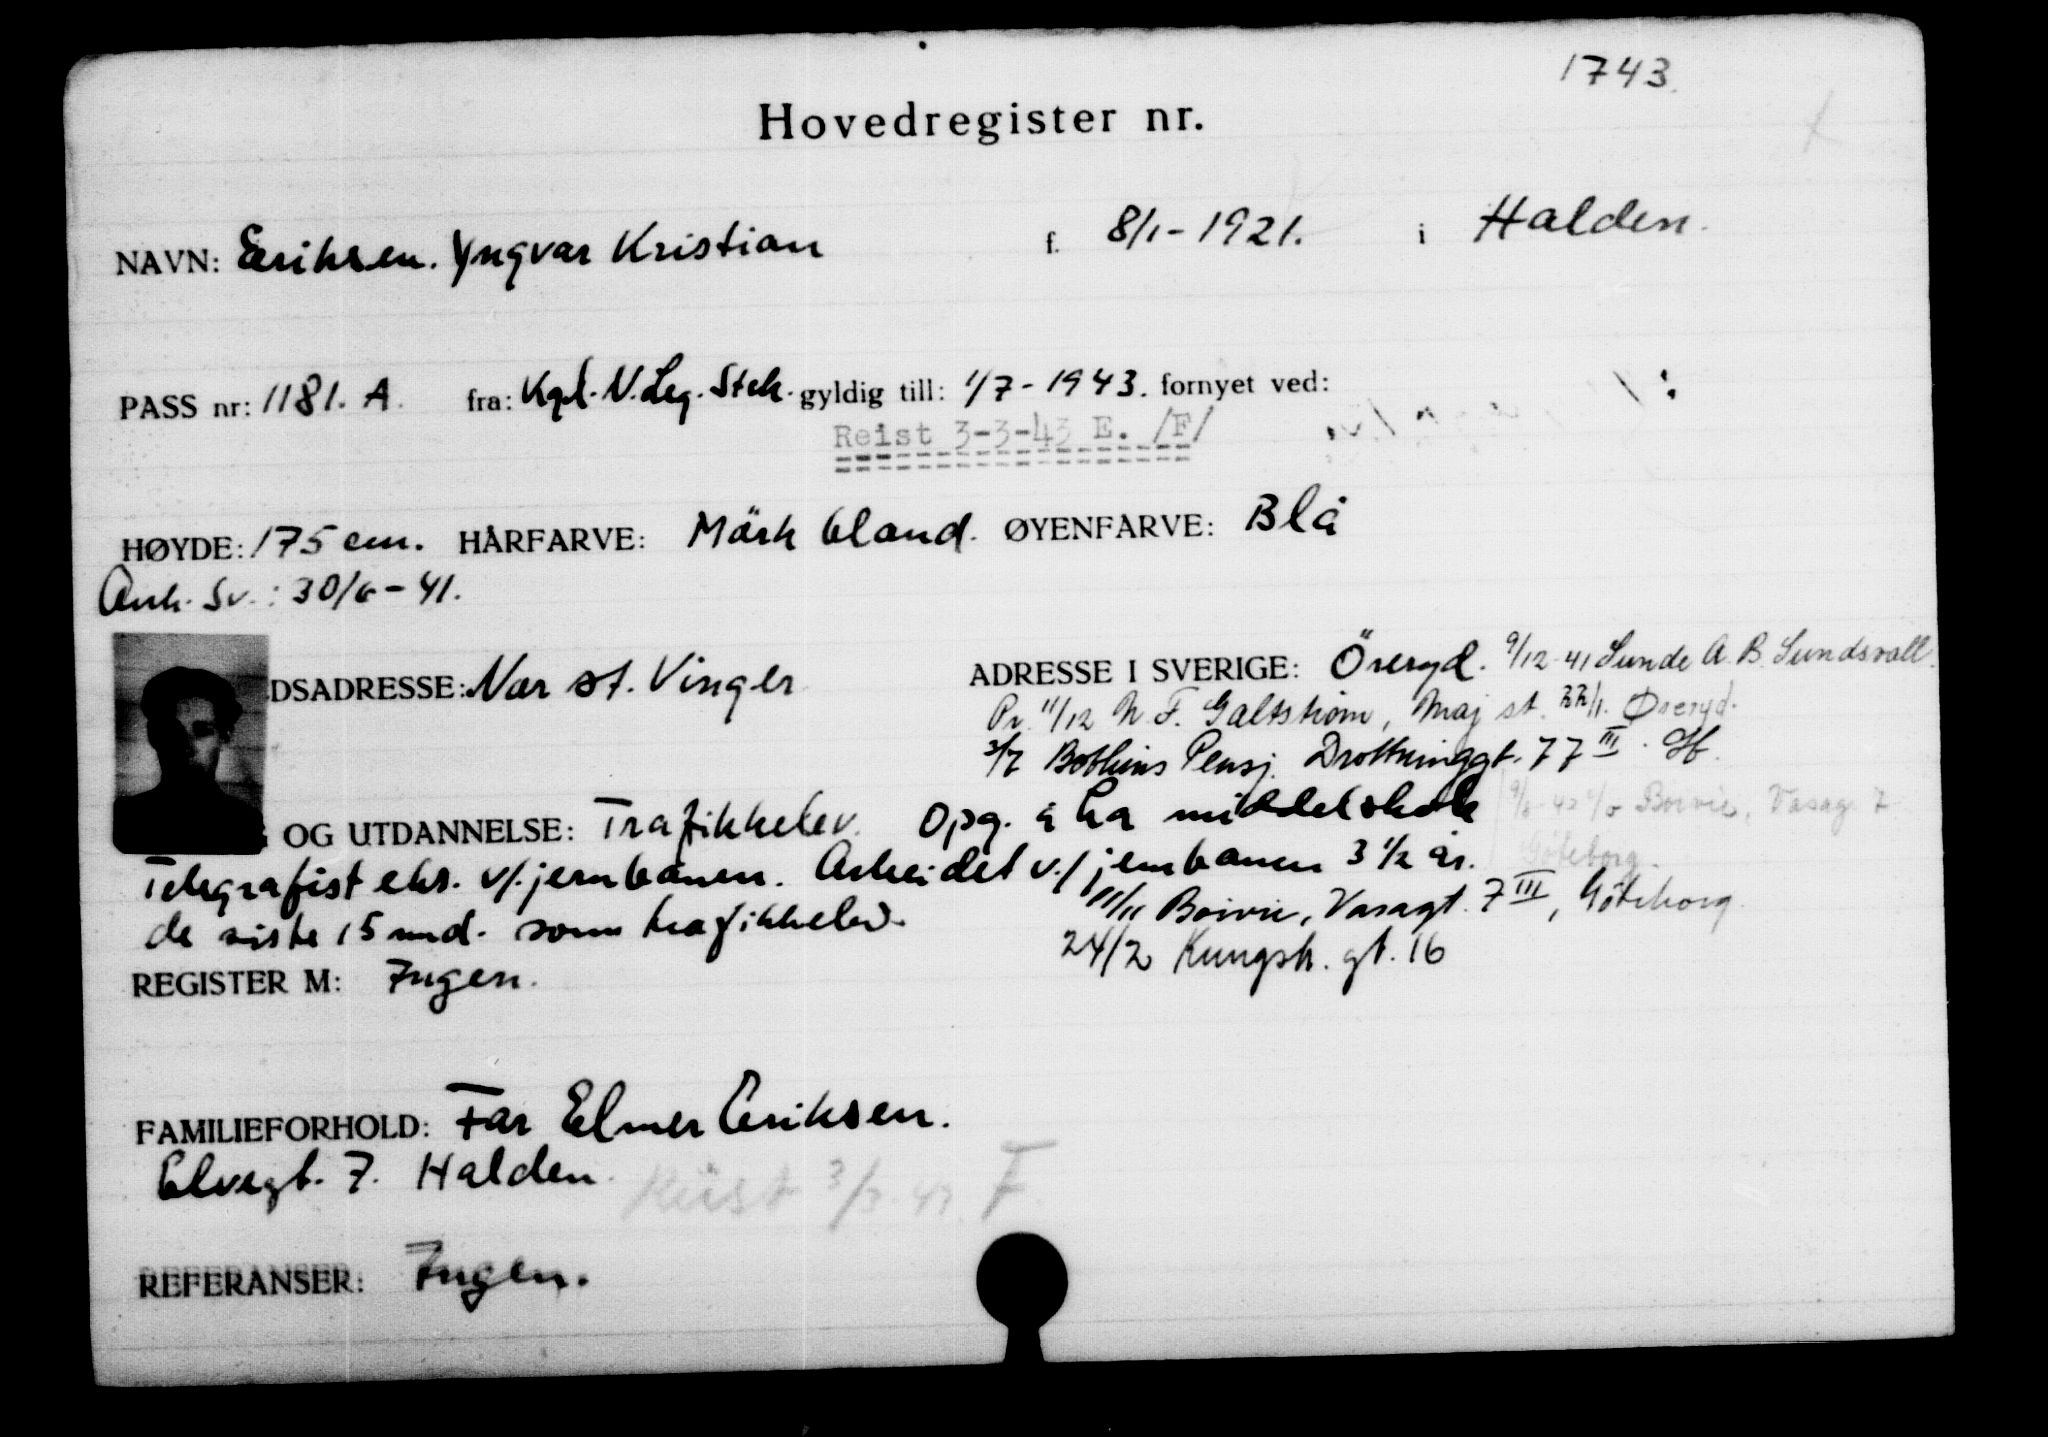 1743
Hovedregister nr.
NAVN: Eriksen. Yngvar Kristian f. 8/1-1921. i Halden.
PASS nr: 1181. A. fra: Kgl. N. Leg. Stck. gyldig till: 1/7-1943. fornyet ved:
Reist 3-3-43 E. /F/
HØYDE: 175 cm. HÅRFARVE: Mörk bland. ØYENFARVE: Blå
Ank. Sv.: 30/6-41.
DSADRESSE: Nor st. Vinger ADRESSE I SVERIGE: Öreryd. 9/12-41 Sunde A. B. Sundsvall.
Pr. 11/12 N. F. Galtström, Maj st. 22/1. Øreryd.
3/7 Bobbins Pensj. Drottninggt. 77 III.
G OG UTDANNELSE: Trafikkelev. Opg. å ha middelskole Boivie, Vasag. 7
Göteborg.
Telegrafist eks. v/jernbanen. Arbeidet v./jernbanen 3 1/2 år.
11/11 Boivie, Vasagt. 7 III, Göteborg.
de siste 15 mnd. som trafikkelev.
24/2 Kungsh. gt. 16
REGISTER M: Ingen.
FAMILIEFORHOLD: Far Elmer Eriksen.
Elvegt. 7. Halden.
Reist 3/3-43. F.
REFERANSER: Ingen.